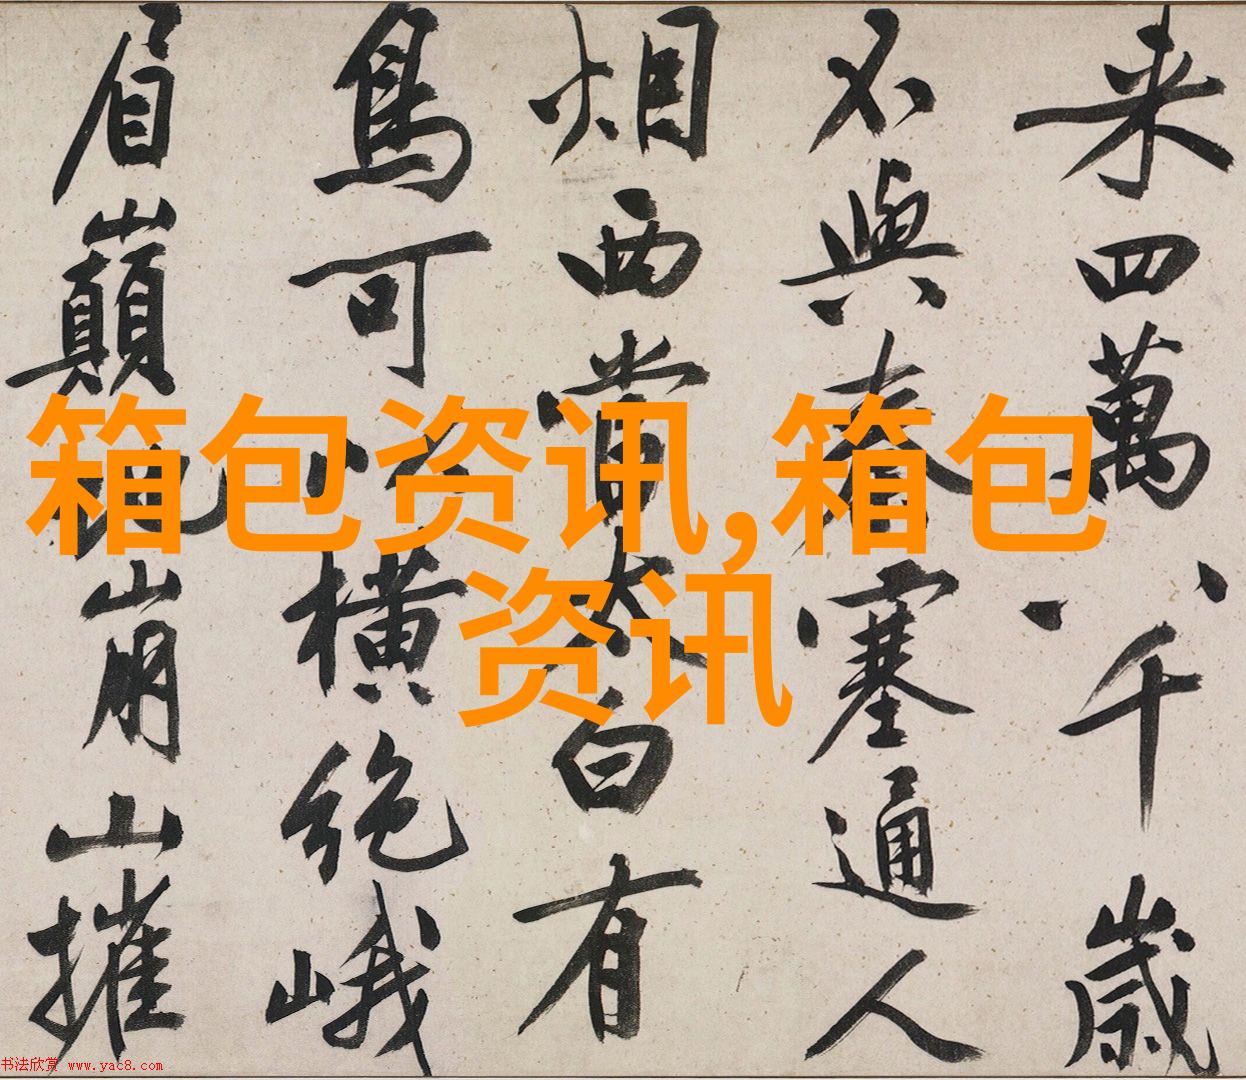 来四萬八千歲
不與秦塞通人
烟西當太白有
鳥可以橫絶峨
眉巔地崩山摧
箱包资讯,箱包
资讯
书法欣赏 www.yac8.com